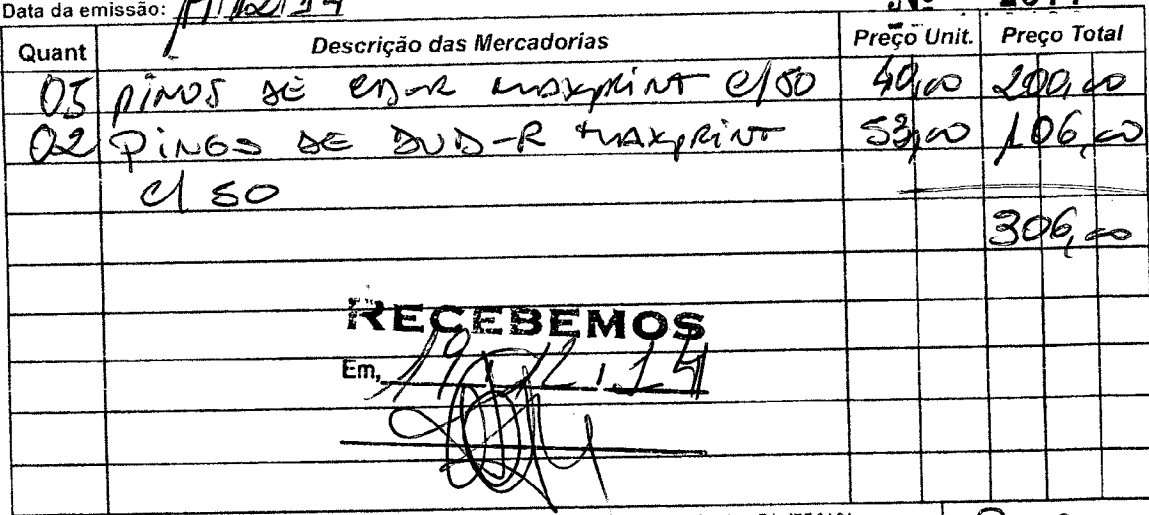 Data da emissão:
Nº
Quant Descrição das Mercadorias Preço Unit. Preço Total
05 PINOS DE CD-R MAXPRINT C/50 40,00 200,00
02 PINOS DE DVD-R MAXPRINT 53,00 106,00
C/ 50
306,00
RECEBEMOS
Em, 19.12.14